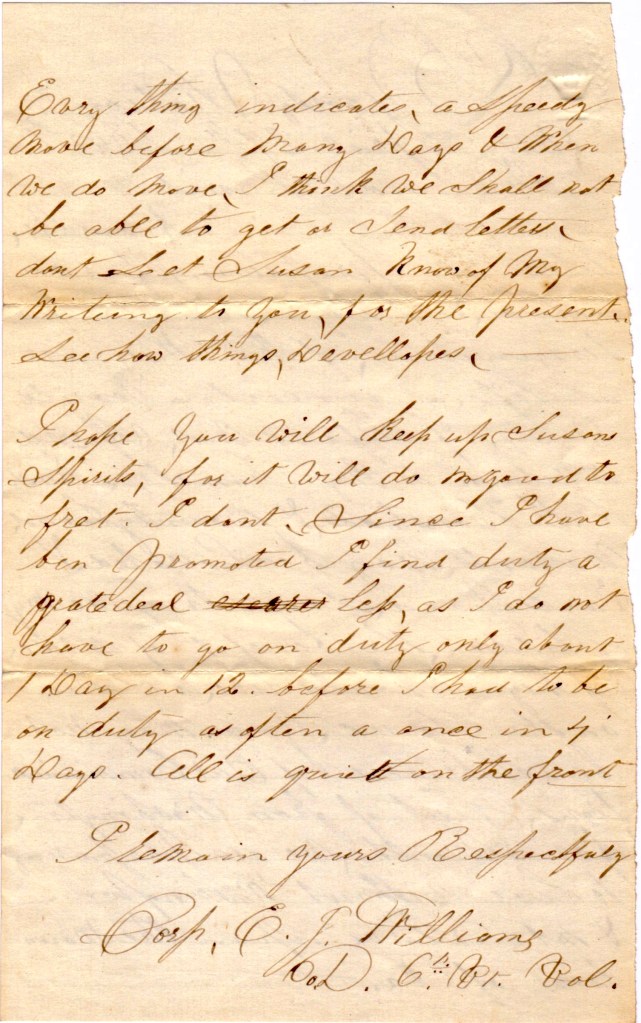 Evry thing indicates, a speedy
move before Many Days & When
We do Move, I think We Shall not
be able to get or Send letters,
dont Let Susan Know of My
Writing to You, for the present.
See how things, Devellopes,
I hope You Will keep up Susans
Spirits, for it Will do no good to
fret. I dont, Since I have
ben promoted I find duty a
grate deal less, as I do not
have to go on duty only about
1 Day in 12. before I had to be
on duty as often a once in 4
Days. All is quiett on the front
I remain yours Respectfuly
Corp, E. J. Williams
Co D. 6th Vt. Vol.